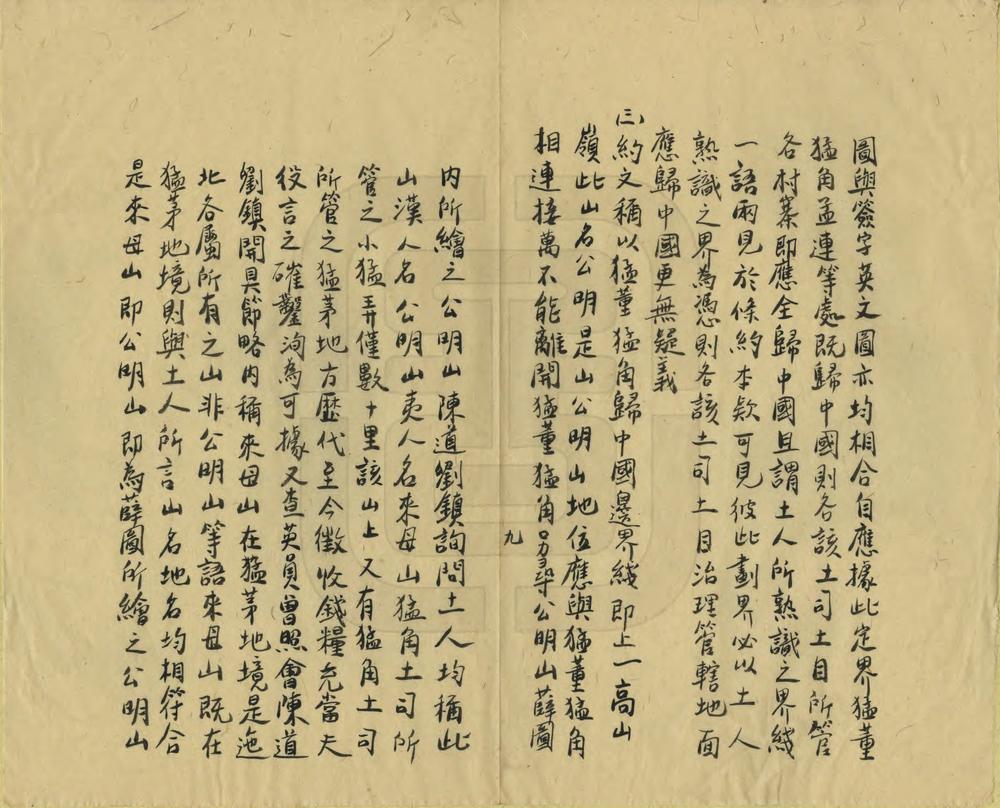 圖與簽字英文圖亦均相合自應據此定界猛董
猛角孟連等處既歸中國則各該土司土目所管
各村寨即應全歸中國且謂土人所熟識之界綫
一語兩見於條約本欵可見彼此劃界必以土人
熟識之界為憑則各該土司土目治理管轄地面
應歸中國更無疑義
三、約文稱以猛董猛角歸中國邊界綫即上一高山
嶺此山名公明是山公明山地位應與猛董猛角
相連接萬不能離開猛董猛角另尋公明山薛圖
九
內所繪之公明山陳道劉鎮詢問土人均稱此
山漢人名公明山夷人名來母山猛角土司所
管之小猛弄僅數十里該山上又有猛角土司
所管之猛茅地方歷代至今徵收錢糧充當夫
役言之確鑿洵為可據又查英員曾照會陳道
劉鎮開具節略內稱來母山在猛茅地境是迤
北各屬所有之山非公明山等語來母山既在
猛茅地境則與土人所言山名地名均相符合
是來母山即公明山即為薛圖所繪之公明山